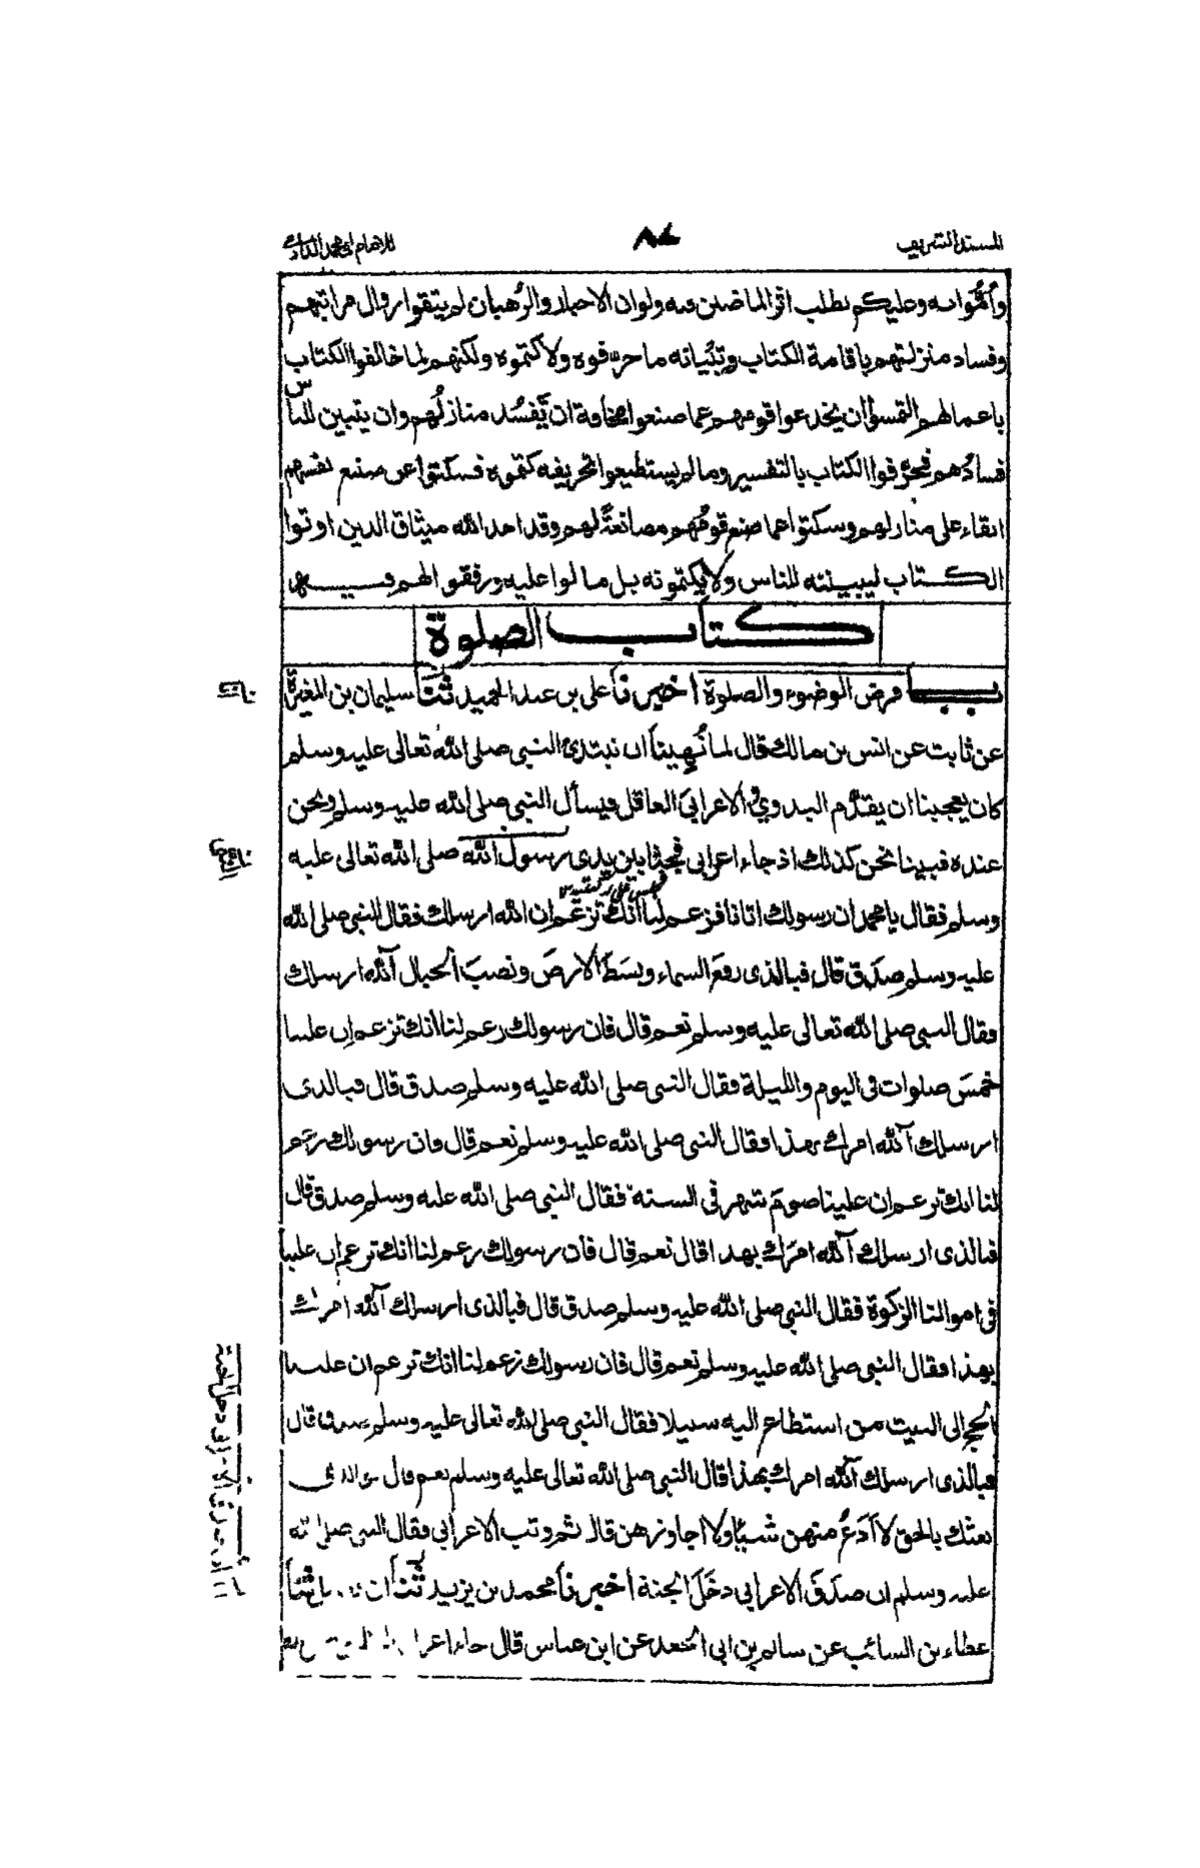 المسند الشريف ٨٧ للامام ابى محمد الدارمى
وأتموا به وعليكم بطلب اثر الماضين فيه ولو ان الاحبار والرهبان لم يتقوا زوال مراتبهم
وفساد منزلتهم باقامة الكتاب وتبيانه ما حرفوه ولا كتموه ولكنهم لما خالفوا الكتاب
باعمالهم التمسوا ان يخدعوا قومهم عما صنعوا مخافة ان يَفسُد منازلُهم وان يتبين للناس
فسادُهم فحرَّفوا الكتاب بالتفسير وما لم يستطيعوا تحريفه كتموه فسكتوا عن صنيع انفسهم
ابقاء على منازلهم وسكتوا عما صنع قومُهم مصانعةً لهم وقد اخذ الله ميثاق الذين اوتوا
الكتاب ليبيننه للناس ولا يكتمونه بل مالوا عليه ورفقوا لهم فيه
كتاب الصلوة
باب فرض الوضوء والصلوة اخبرنا على بن عبد الحميد ثنا سليمان بن المغيرة
عن ثابت عن انس بن مالك قال لما نُهينا ان نبتدئ النبى صلى الله تعالى عليه وسلم
كان يعجبنا ان يقدُم البدوي والاعرابى العاقل فيسأل النبى صلى الله عليه وسلم ونحن
عنده فبينا نحن كذلك اذ جاء اعرابى فجثا بين يدى رسول الله صلى الله تعالى عليه
وسلم فقال يا محمد ان رسولك اتانا فزعم لنا انك تزعم ان الله ارسلك فقال النبى صلى الله
عليه وسلم صدَق قال فبالذى رفعَ السماء وبسَطَ الارضَ ونصبَ الجبال آلله ارسلك
فقال النبى صلى الله تعالى عليه وسلم نعم قال فان رسولك زعم لنا انك تزعم ان علينا
خمسَ صلوات فى اليوم والليلة فقال النبى صلى الله عليه وسلم صدق قال فبالذى
ارسلك آلله امرك بهذا فقال النبى صلى الله عليه وسلم نعم قال فان رسولك زعم
لنا انك تزعم ان علينا صومَ شهر فى السنة فقال النبى صلى الله عليه وسلم صدق قال
فبالذى ارسلك آلله امرَك بهذا قال نعم قال فان رسولك زعم لنا انك تزعم ان علينا
فى اموالنا الزكوة فقال النبى صلى الله عليه وسلم صدق قال فبالذى ارسلك آلله امرك
بهذا فقال النبى صلى الله عليه وسلم نعم قال فان رسولك زعم لنا انك تزعم ان علينا
الحج الى البيت من استطاع اليه سبيلا فقال النبى صلى الله تعالى عليه وسلم صدق قال
فبالذى ارسلك آلله امرك بهذا قال النبى صلى الله تعالى عليه وسلم نعم قال فوالذى
بعثك بالحق لا أدَعُ منهن شيئا ولا اجاوزهن قال ثم وثب الاعرابى فقال النبى صلى الله
عليه وسلم ان صدَقَ الاعرابى دخَلَ الجنة اخبرنا محمد بن يزيد ثنا ثنا
عطاء بن السائب عن سالم بن ابى الجعد عن ابن عباس قال جاء